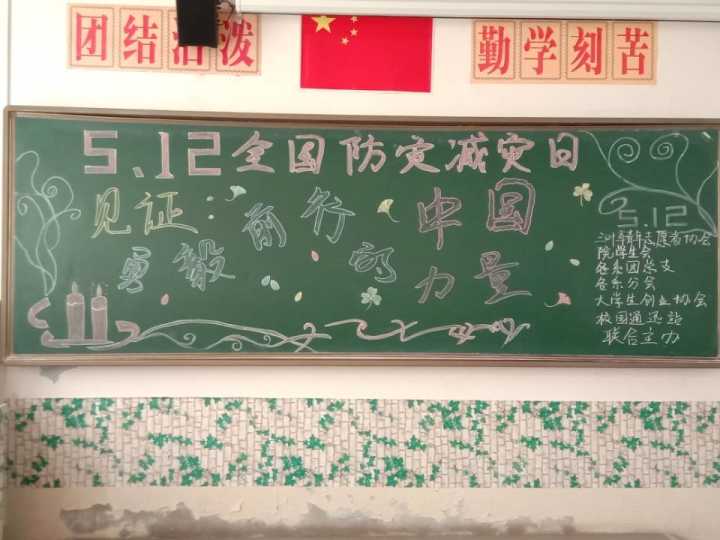 团结活泼
勤学刻苦
5.12全国防灾减灾日
见证：前行中国
勇毅的力量
5.12
青年志愿者协会
院学生会
各系团总支
各系分会
大学生创业协会
校园通迅站
联合主办